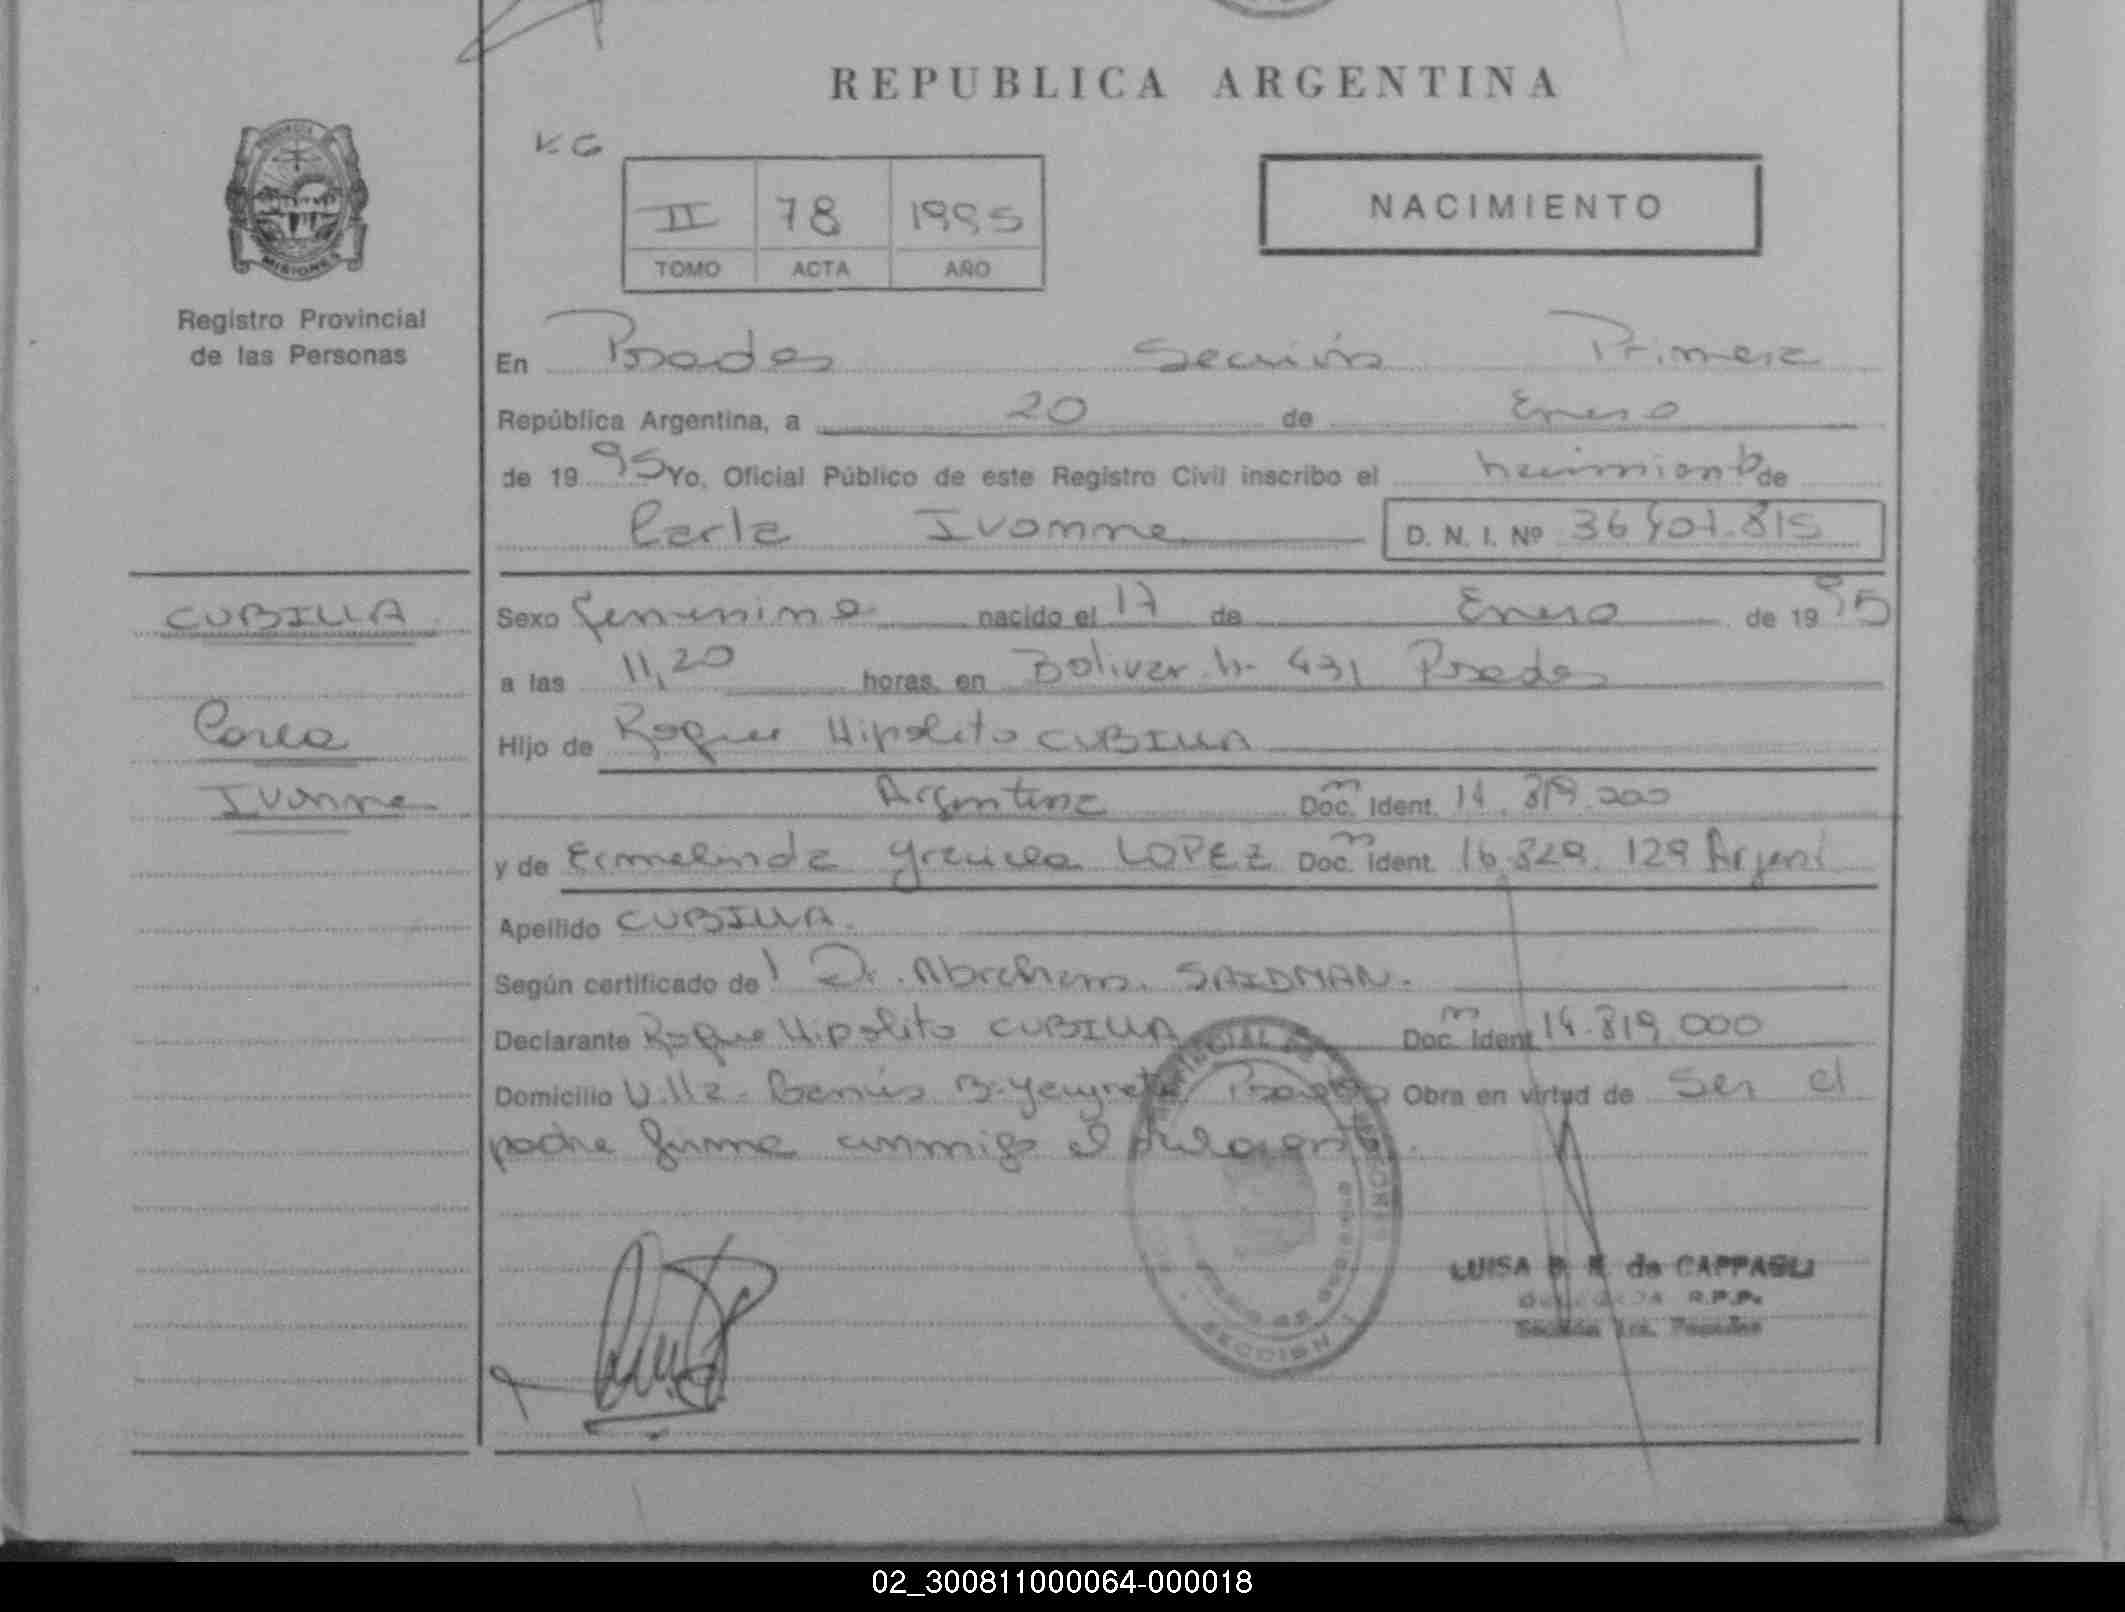 REPUBLICA ARGENTINA
KG
II 78 1995
TOMO ACTA AÑO
NACIMIENTO
MISIONES
Registro Provincial
de las Personas
En Posadas Sección Primera
República Argentina, a 20 de Enero
de 1995 Yo, Oficial Público de este Registro Civil inscribo el nacimiento de
Carla Ivonne D. N. I. Nº 36.407.815
CUBILLA
Sexo femenino nacido el 17 de Enero de 1995
a las 11,20 horas en Bolivar Nº 431 Posadas
Carla
Hijo de Roque Hipolito CUBILLA
Ivonne
Argentina Doc. Ident. 14.819.000
y de Ermelinda Graciela LOPEZ Doc. Ident. 16.829.129 Argent
Apellido CUBILLA.
Según certificado de l Dr. Abraham SAIDMAN.
Declarante Roque Hipolito CUBILLA Doc. Ident 14.819.000
Domicilio Villa Posadas Obra en virtud de ser el
padre firma conmigo el
SECCION 1
LUISA de CAPPAGLI
DELEGADA R.P.P.
Sección 1ra. Posadas
02_300811000064-000018